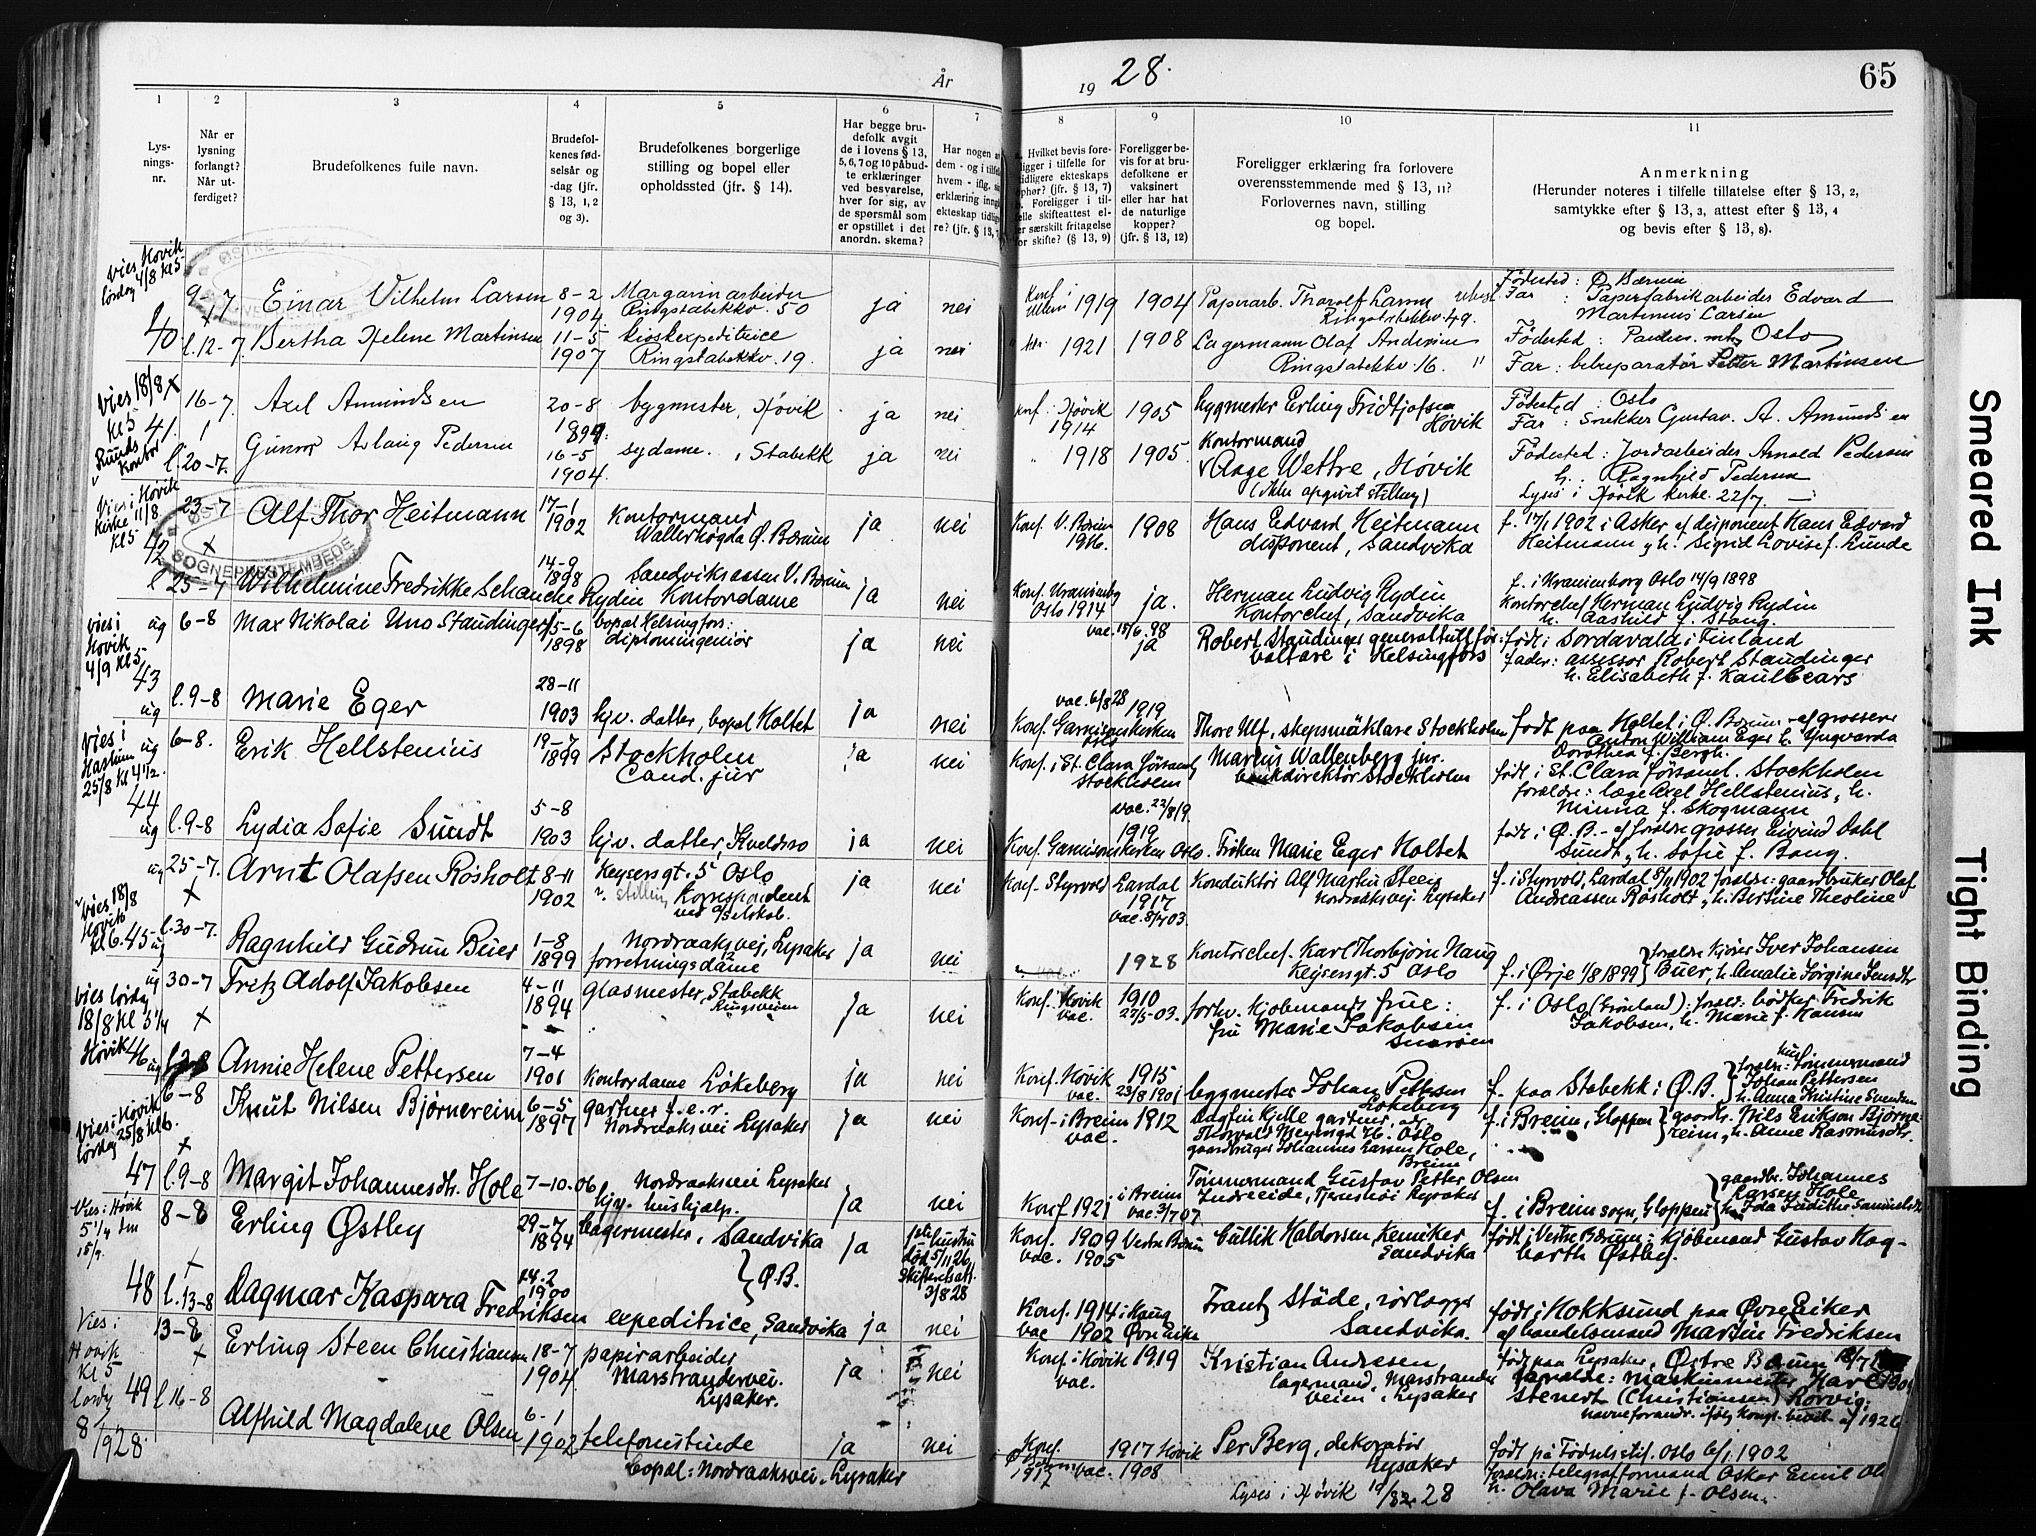 År 19 28. 65
1 2 3 4 5 6 7 8 9 10 11
Lys-
nings-
nr.
Når er
lysning
forlangt?
Når ut-
ferdiget?
Brudefolkenes fulle navn.
Brudefol-
kenes fød-
selsår og
-dag (jfr.
§ 13, 1, 2
og 3).
Brudefolkenes borgerlige
stilling og bopel eller
opholdssted (jfr. § 14).
Har begge bru-
defolk avgit
de i lovens § 13,
5, 6, 7 og 10 påbud-
te erklæringer
ved besvarelse,
hver for sig, av
de spørsmål som
er opstillet i det
anordn. skema?
Har nogen a
dem - og i tilfe
hvem - iflg. si
erklæring inng
ekteskap tidlig
re? (jfr. § 13, 7
Hvilket bevis fore-
ligger i tilfelle for
tidligere ekteskaps
ophør? (jfr. § 13, 7)
Foreligger i til-
felle skifteattest el-
er særskilt fritagelse
for skifte? (§ 13, 9)
Foreligger be-
vis for at bru-
defolkene er
vaksinert
eller har hat
de naturlige
kopper?
(jfr. § 13, 12)
Foreligger erklæring fra forlovere
overensstemmende med § 13, 11?
Forlovernes navn, stilling
og bopel.
Anmerkning
(Herunder noteres i tilfelle tillatelse efter § 13, 2,
samtykke efter § 13, 3, attest efter § 13, 4
og bevis efter § 13, 8).
vies Høvik
lørdag 4/8 kl 5
40
9-7
Einar Vilhelm Larsen
8-2
1904
Margarinarbeider
Ringstabekkv. 50
ja nei
1919 1904
Ringstabekkv. 49.
Fødested: Ø Bærum
Far: Papirfabrikarbeider Edvard
Martinius Larsen
l. 12-7
Bertha Helene Martinsen
11-5
1907
kioskexpeditrice
Ringstabekkv. 19.
ja nei
1921 1908
Lagermann Olaf Andersen
Ringstabekkv. 16. "
Fødested: Oslo
Far: Petter Martinsen
vies 18/8 x
kl 5
41.
16-7.
Axel Amundsen
20-8
1899.
bygmester, Høvik
ja nei
Høvik
1914
1905
bygmester Erling Fridtjofsen
Høvik
Fødested: Oslo
Far: Snekker Gustav. A. Amundsen
Kontor
l. 20-7.
Gunvor Aslaug Pedersen
16-5
1904.
sydame., Stabekk
ja nei
" 1918 1905
Kontormand
Aage Wettre, Høvik
(ikke opgivit stilling)
Fødested: Jordarbeider Arnold Pedersen
h. Ragnhild Pedersen
Lyses i Høvik kirke 22/7.
Vies i Høvik
Kirke 11/8
Kl 5
42
23-7
x
SOGNEPRESTEMBEDE
Alf Thor Heitmann
17-1
1902
Kontormand
Wallerhøgda Ø. Bærum
ja nei
Konf. V. Bærum
1916.
1908
Hans Edvard Heitmann
disponent, Sandvika
f. 17/1 1902 i Asker af disponent Hans Edvard
Heitmann og h. Sigrid Lovise f. Lunde
l 25-7
Wilhelmine Fredrikke Schanche Rydin
14-9
1898
Sandviksåssen V. Bærum
Kontordame
ja nei
Konf. Uranienborg
Oslo 1914
ja.
Herman Ludvig Rydin
Kontorchef, Sandvika
f. i Uranienborg Oslo 14/9 1898
Kontorchef Herman Ludvig Rydin
h. Aashild f. Stang.
vies i
Høvik
4/9 kl 5
43
ug 6-8
Max Nikolai Uno Staudinger
15-6
1898
bopel Helsingfors:
diplomingeniør
ja nei
vac. 15/6. 98
ja
Robert Staudinger generalfullför-
valtare i Helsingfors
født i Sordavala i Finland
fader: assessor Robert Staudinger
h. Elisabeth f. Kaul Cears
ug l. 9-8
Marie Eger
28-11
1903
hjv. datter, bopel Holtet
ja nei
vac. 6/8 28
1919
Konf. Garnisonskirken
Oslo
Thore Ulf, skepsmäklare Stockholm
født paa Holtet i Ø. Bærum - af grosserer
Anton William Eger h. Yngvarda
Dorothea f. Bergh.
vies i
Haslum
25/8 kl 4 1/2.
44
ug 6-8.
Erik Hellstenius
19-7
1899
Stockholm
Cand. jur
ja nei
Konf. i St. Clara församl,
Stockholm
Marcus Wallenberg jur.
bankdirektör Stockholm
født i St. Clara församl. Stockholm
forældre: læge Axel Hellstenius, h.
Minna f. Skogmann
ug l. 9-8
Lydia Sofie Sundt
5-8
1903
hjv. datter, Kveldsro
ja nei
vac. 22/8 19.
1919
Konf. Garnisonskirken Oslo.
Frøken Marie Eger Holtet
født i Ø. B. - af forældre grosser Eivind Dahl
Sundt, h. Sofie f. Bang.
vies 18/8
Høvik
kl 6.
45
ug 25-7.
x
Arnt Olafsen Røsholt
8-11
1902
Keysersgt. 5 Oslo
Korrespondent
ved a/s elskab.
ja nei
Konf. Styrvold, Lardal
1917
vac. 8/7 03.
Konduktør Alf Martin Steen
Nordraaksvej. Lysaker
f. i Styrvold, Lardal 8/11 1902 forældre: gaardbruker Olaf
Andreassen Røsholt, h. Bertine Theoline
l. 30-7.
Ragnhild Gudrun Buer
1-8
1899
Nordraaksvej, Lysaker
forretningsdame
ja nei
1928
Kontorchef. Karl Thorbjørn Haug
Keysersgt. 5 Oslo
f. i Ørje 1/8 1899
forældre Kjører Iver Johansen
Buer, h. Amalie Jørgine Jensdtr
vies lørdag
18/8 kl 5 1/4
Høvik 46
ug 30-7
x
Fritz Adolf Jakobsen
4-11
1894
glasmester, Stabekk
Ringsveien
ja nei
Konf. Høvik
vac.
1910
27/5-03.
forhv. kjøbmands frue:
fru Marie Jakobsen
Snarøen
f. i Oslo (Grønland): foreld: bødker Fredrik
Jakobsen, h. Marie f. Hansen
ug l 2-8
Annie Helene Pettersen
7-4
1901
Kontordame Løkeberg
ja nei
Konf. Høvik
vac.
1915
23/8 1901
byggmester Johan Pettersen
Løkeberg
f. paa Stabekk i Ø. B.
foreldr: tømmermand
Johan Pettersen
h. Anna Kristine Svendsen
Vies i Høvik
lørdag 25/8 kl 6.
47
6-8
x
Knut Nilsen Bjørnereim
6-5
1897
gartner f. e. r.
Nordraaksvei Lysaker
ja nei
Konf. i Breim 1912
vac.
Dagfin Kjelle gartner, adr
Thorvald Meyersgt 42. Oslo
gaardbruger Johannes Larsen Hole,
Breim
f. i Breim, Gloppen
gaardbr. Nils Erikson Bjørne-
reim, h. Anne Rasmusdtr.
l. 9-8
Margit Johannesdtr. Hole
7-10. 06
Nordraaksvei Lysaker
hjv. hushjælp.
ja nei
Konf 1921 i Breim
vac. 3/7 07
Tømmermand Gustav Petter Olsen
Indreeide, Lysaker
f. i Breim sogn, Gloppen
gaardbr. Johannes
Larsen Hole
h. Ida Judithe Samuelsdtr
Vies i Høvik
5 1/4 dm
15/9.
48
8-8
x
Erling Østby
29-7
1894
bagermester, Sandvika
} Ø. B.
ja
1ste hustru
død 5/11 26,
Skifteretsatt.
3/8 28
Konf. 1909 Vestre Bærum
vac. 1905
Gullik Haldorsen, Kemiker
Sandvika
født i Vestre Bærum: Kjøbmand Gustav Hag-
barth Østby.
l. 13-8
Dagmar Kaspara Fredriksen
24-2
1900
expeditrice, Sandvika
ja nei
Konf. 1914 i Haug
vac 1902 Øvre Eiker
Frantz Städe, rørlegger
Sandvika.
født i Hokksund paa Øvre Eiker
af handelsmand Martin Fredriksen
Vies i
Høvik
kl 5
lørdg
8/9 28.
49
13-8
x
Erling Steen Christiansen
18-7
1904
papirarbeider
Marstrandervei.
Lysaker.
ja nei
Konf. i Høvik 1919
vac.
Kristian Andresen
lagermand, Marstrander
veien, Lysaker
født paa Lysaker, Østre Bærum 18/7 1904
forældre: maskinmester Karl
Stenert (Christiansen) Rørvig:
navneforandr. ifølg kongl. bevil. af 1926
l 16-8
Alfhild Magdalene Olsen
6-1
1902
telefonistinde
bopæl: Nordraaksvei, Lysaker
ja nei
Konf.
1917 Høvik
vac. 1908
Per Berg, dekoratør
Lysaker
Lyses i Høvik 19/8 28
født på Fødselsstif. Oslo 6/1. 1902
foreldre: telegrafformand Oskar Emil Ol
h. Olava Marie f. Olsen.
Smeared Ink
Tight Binding